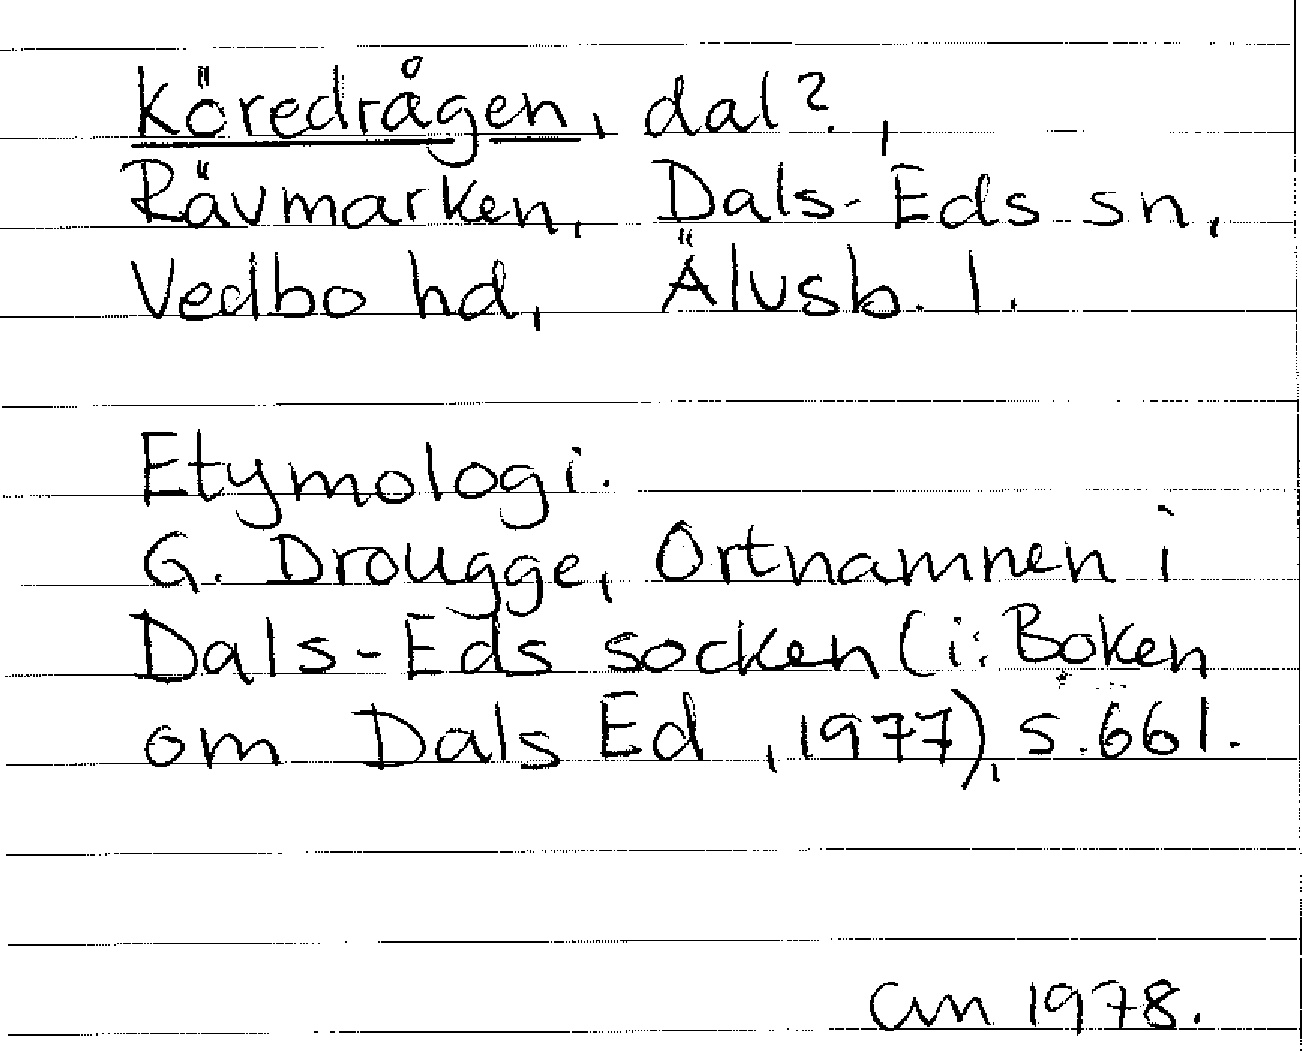 Köredrågen, dal?,
Rävmarken, Dals-Eds sn,
Vedbo hd, Älvsb. l.
Etymologi.
G. Drougge, Ortnamnen i
Dals-Eds socken (i: Boken
om Dals Ed, 1977), s. 661.
1978.